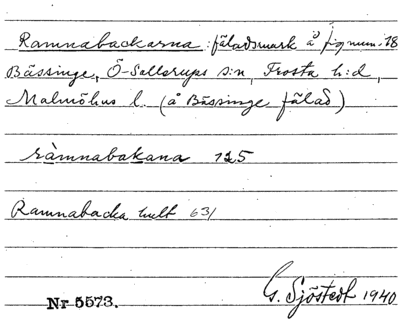 Ramnabackarna: fäladsmark å fig num. 18
Bässinge, Ö-Sallerups s:n, Frosta h:d,
Malmöhus l. (å Bässinge fälad)
ràmnabakana 125
Ramnabacka hult 631
G. Sjöstedt 1940
Nr 5573.